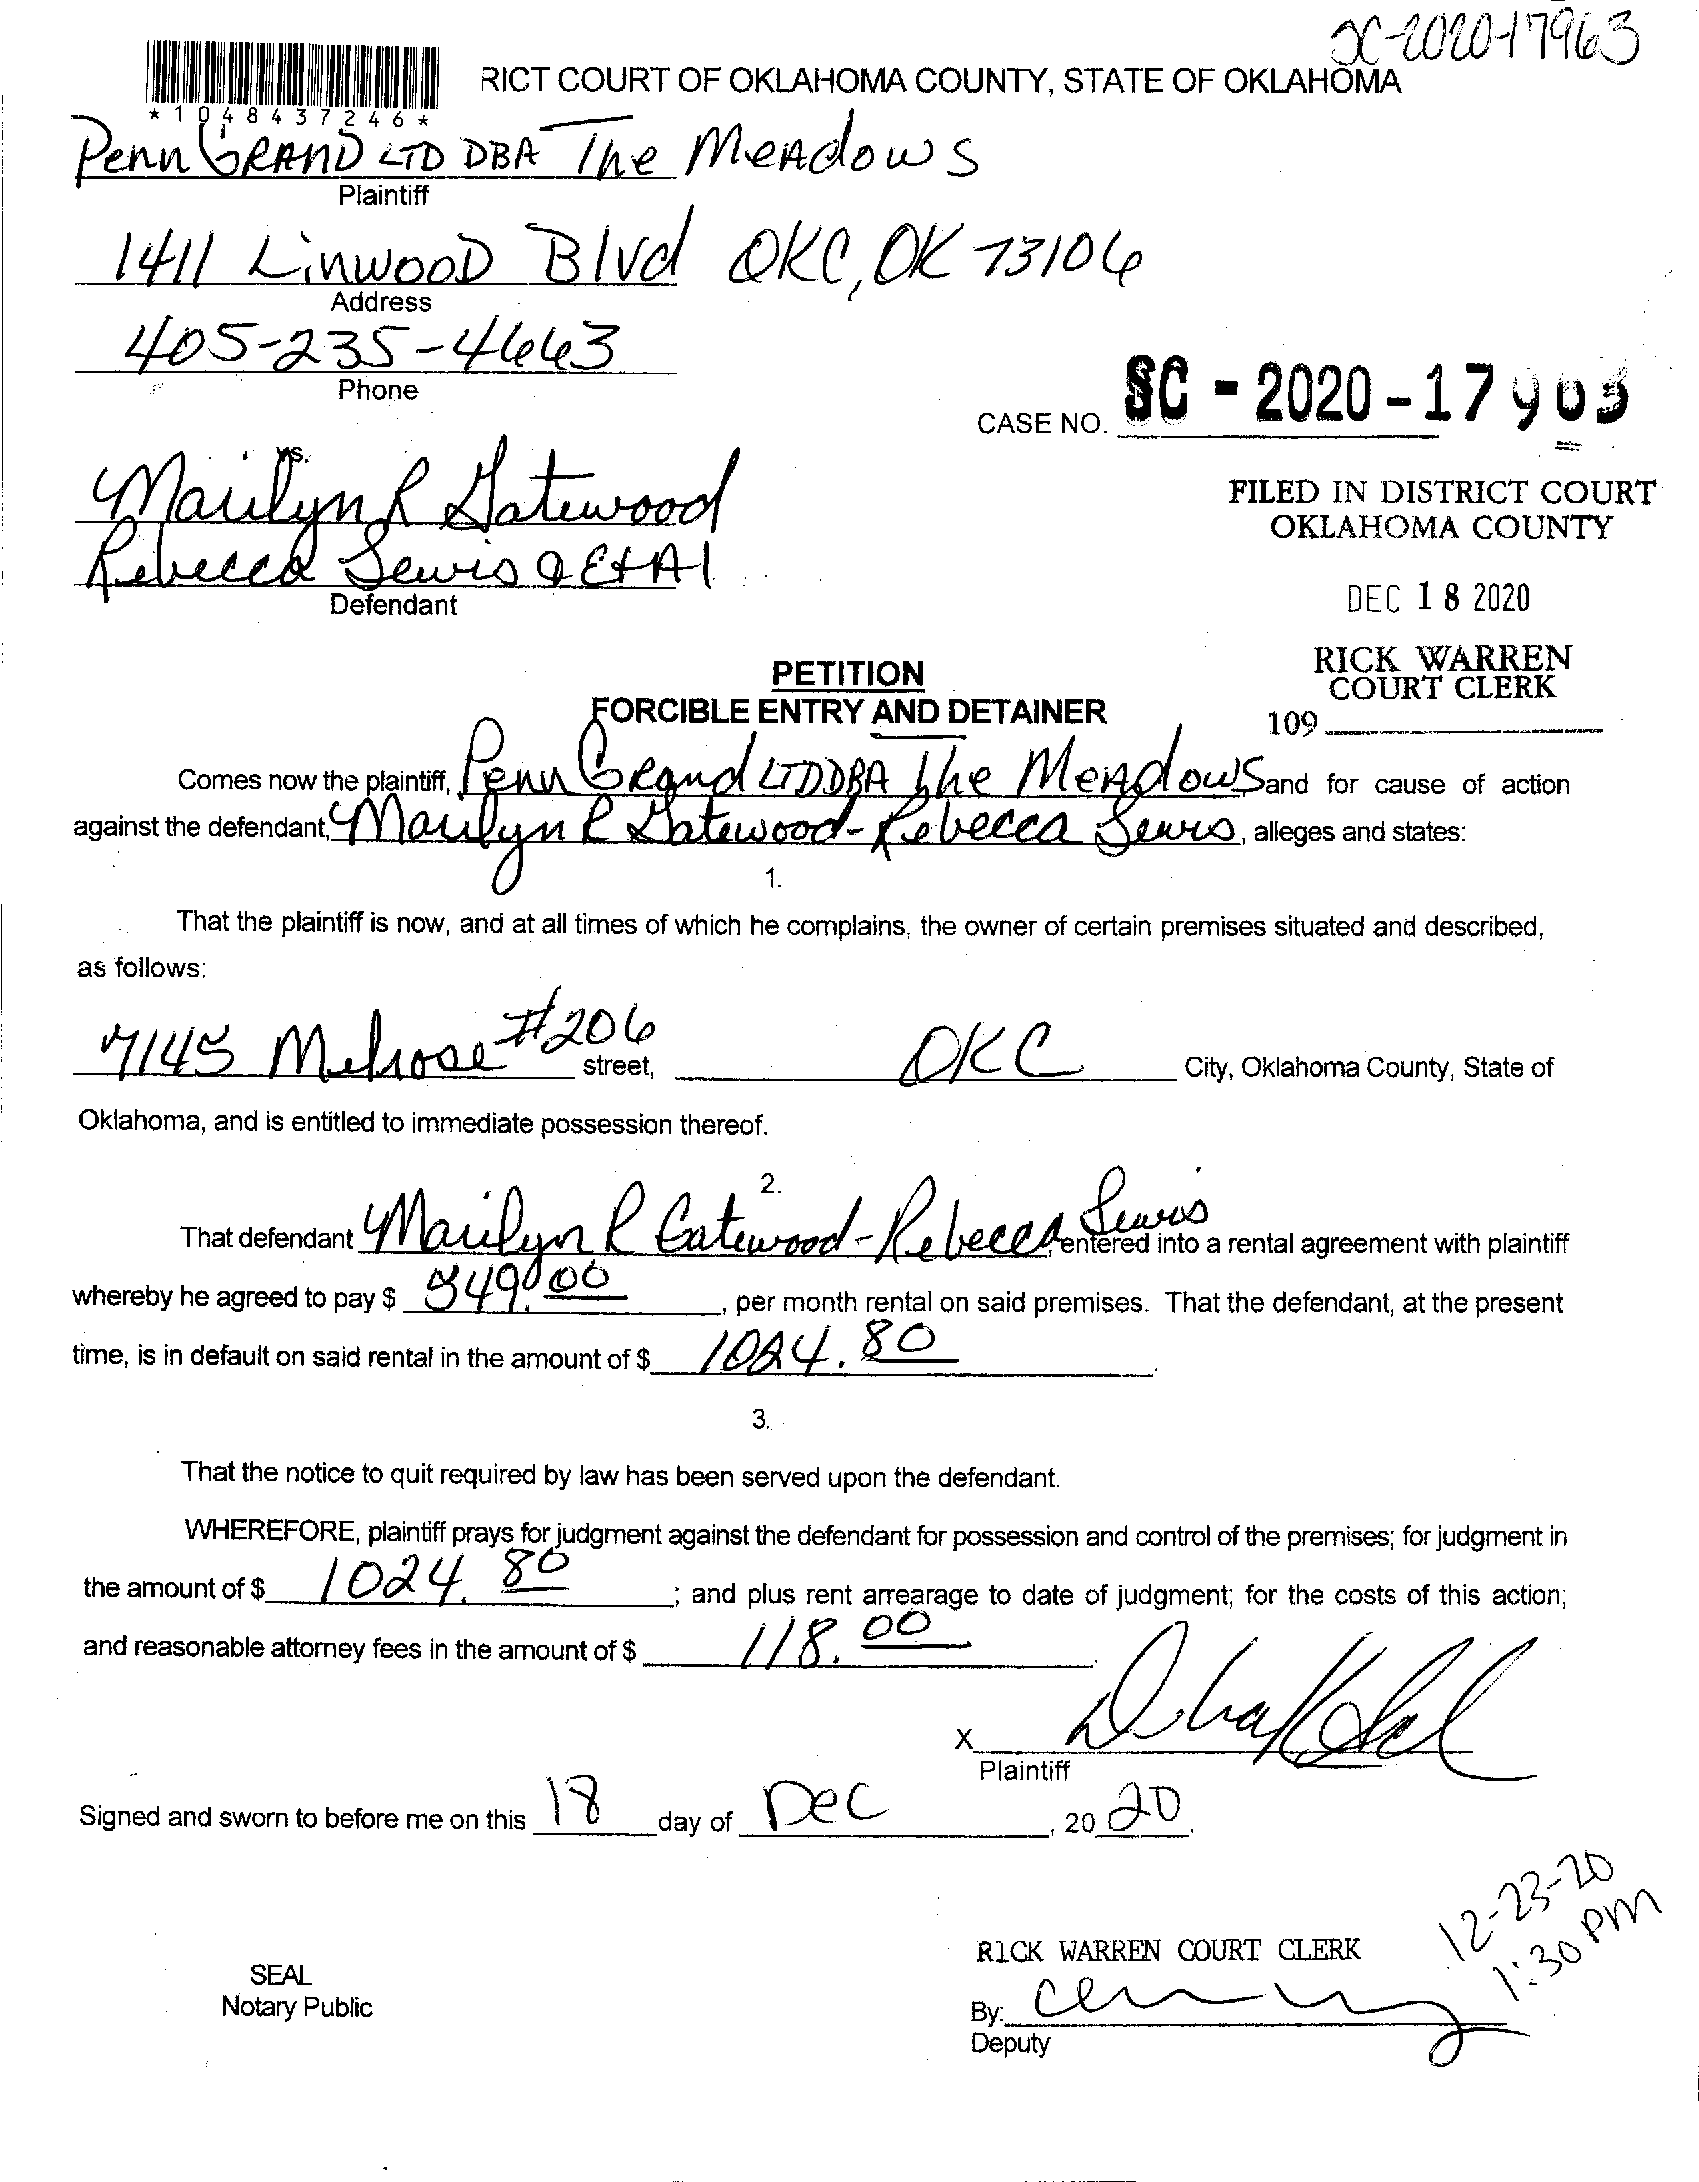 SC-2020-17963
RICT COURT OF OKLAHOMA COUNTY, STATE OF OKLAHOMA
*1048437246*
Penn GRAND LTD DBA The Meadows
Plaintiff
1411 Linwood Blvd OKC, OK 73106
Address
405-235-4663
Phone
CASE NO. SC - 2020 - 17963
vs.
Marilyn R Gatewood
Rebecca Lewis & EtAl
Defendant
FILED IN DISTRICT COURT
OKLAHOMA COUNTY
DEC 18 2020
RICK WARREN
COURT CLERK
109
PETITION
FORCIBLE ENTRY AND DETAINER
Comes now the plaintiff, Penn Grand LTD DBA The Meadows and for cause of action
against the defendant, Marilyn R Gatewood - Rebecca Lewis, alleges and states:
1.
That the plaintiff is now, and at all times of which he complains, the owner of certain premises situated and described,
as follows:
7145 Melrose #206 street, OKC City, Oklahoma County, State of
Oklahoma, and is entitled to immediate possession thereof.
2.
That defendant Marilyn R Gatewood - Rebecca Lewis entered into a rental agreement with plaintiff
whereby he agreed to pay $ 849.00, per month rental on said premises. That the defendant, at the present
time, is in default on said rental in the amount of $ 1024.80.
3.
That the notice to quit required by law has been served upon the defendant.
WHEREFORE, plaintiff prays for judgment against the defendant for possession and control of the premises; for judgment in
the amount of $ 1024.80; and plus rent arrearage to date of judgment; for the costs of this action;
and reasonable attorney fees in the amount of $ 118.00
X
Plaintiff
Signed and sworn to before me on this 18 day of Dec, 20 20.
12-23-20
1:30 PM
RICK WARREN COURT CLERK
SEAL
Notary Public
By:
Deputy